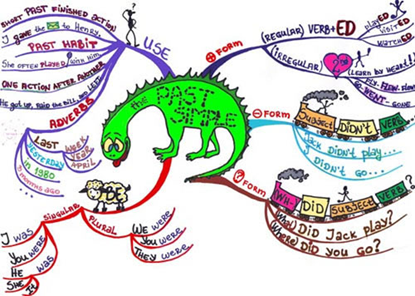 the PAST SIMPLE
USE
SHORT PAST FINISHED ACTION
I gave the to Henry.
PAST HABIT
SHE OFTEN PLAYED WITH HIM
ONE ACTION AFTER ANOTHER
He got up, paid the bill, and LEFT
ADVERBS
LAST WEEK
YEAR
APRIL
YESTERDAY
in 1980
MONTHS AGO...
BE
SINGULAR
I WAS
YOU WERE
HE WAS
SHE
IT
PLURAL
WE WERE
YOU WERE
THEY WERE
+ FORM
(REGULAR) VERB+ED
PLAYED
VISITED
WATCHED
(IRREGULAR)
(LEARN BY HEART!)
GO-WENT-GONE
- FORM
SUBJECT DIDN'T VERB
JACK DIDN'T PLAY...
I DIDN'T GO...
? FORM
WH-? DID SUBJECT VERB?
(What) Did Jack play?
(Where) Did you go?